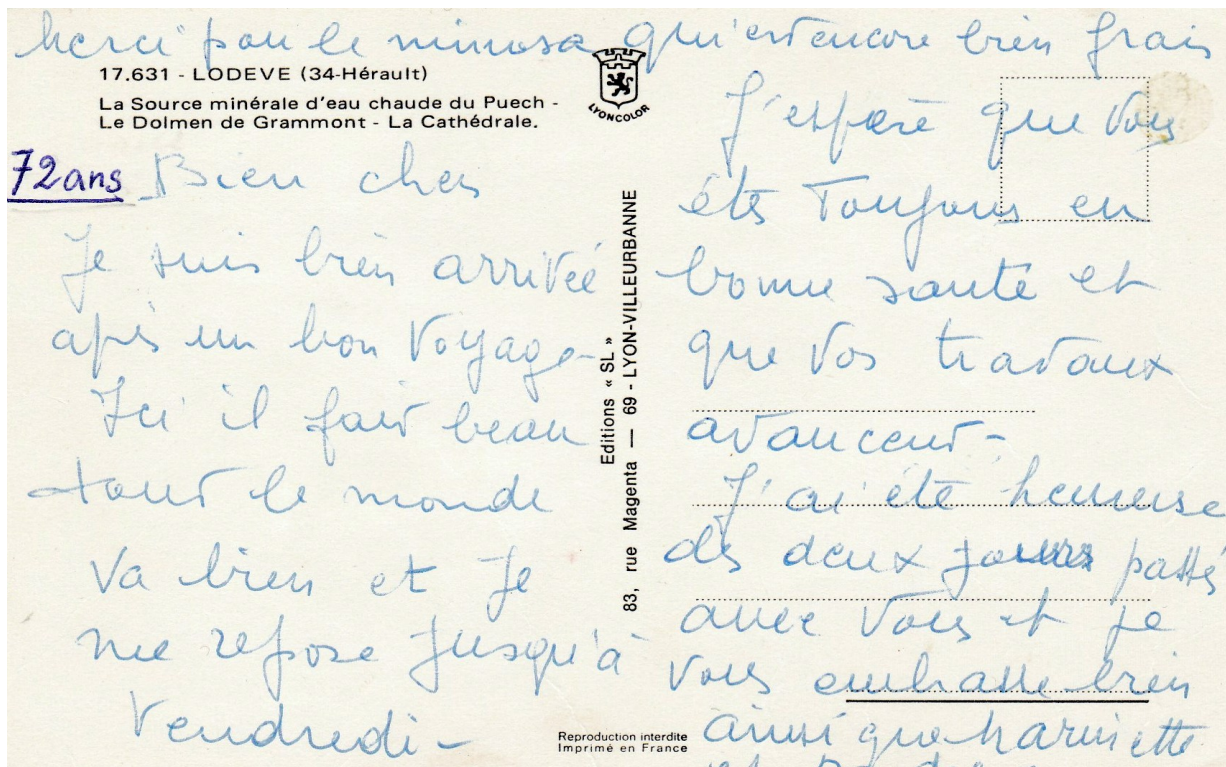 merci pou le mimosa qui est encore bien frais
17.631 - LODEVE (34-Hérault)
La Source minérale d'eau chaude du Puech -
Le Dolmen de Grammont - La Cathédrale.
LYONCOLOR
72 ans
Bien chers
Je suis bien arrivée
après un bon voyage -
Ici il fait beau
tout le monde
va bien et je
me repose jusqu'à
vendredi -
Editions « SL »
83, rue Magenta — 69 - LYON-VILLEURBANNE
Reproduction interdite
Imprimé en France
J'espère que vous
êtes toujours en
bonne santé et
que vos travaux
avancent -
J'ai été heureuse
des deux jours passés
avec vous et je
vous embrasse bien
ainsi que
et